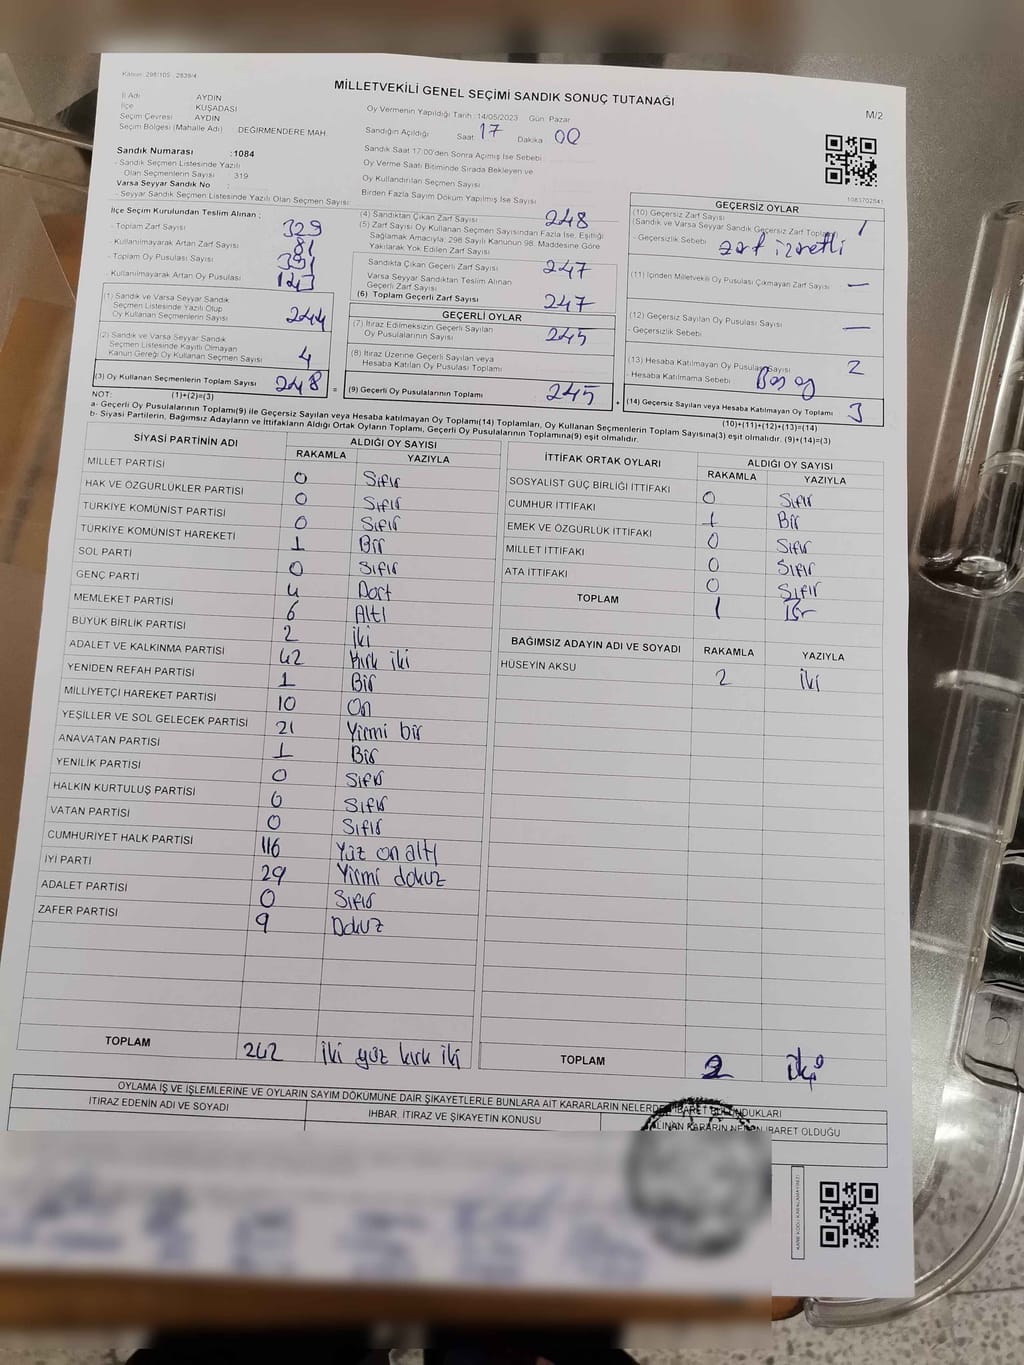 Kanun: 298/105 , 2839/4
MİLLETVEKİLİ GENEL SEÇİMİ SANDIK SONUÇ TUTANAĞI
M/2
İl Adı AYDIN
İlçe KUŞADASI
Seçim Çevresi AYDIN
Seçim Bölgesi (Mahalle Adı) DEĞİRMENDERE MAH.
Oy Vermenin Yapıldığı Tarih : 14/05/2023 Gün: Pazar
Sandığın Açıldığı Saat 17 Dakika 00
Sandık Saat 17:00'den Sonra Açımış İse Sebebi
Oy Verme Saati Bitiminde Sırada Bekleyen ve
Oy Kullandırılan Seçmen Sayısı
Birden Fazla Sayım Döküm Yapılmış İse Sayısı
1083702541
Sandık Numarası : 1084
- Sandık Seçmen Listesinde Yazılı
Olan Seçmenlerin Sayısı : 319
Varsa Seyyar Sandık No :
- Seyyar Sandık Seçmen Listesinde Yazılı Olan Seçmen Sayısı
İlçe Seçim Kurulundan Teslim Alınan ;
- Toplam Zarf Sayısı 329
- Kullanılmayarak Artan Zarf Sayısı 81
- Toplam Oy Pusulası Sayısı 391
- Kullanılmayarak Artan Oy Pusulası 143
(1) Sandık ve Varsa Seyyar Sandık
Seçmen Listesinde Yazılı Olup
Oy Kullanan Seçmenlerin Sayısı 244
(2) Sandık ve Varsa Seyyar Sandık
Seçmen Listesinde Kayıtlı Olmayan
Kanun Gereği Oy Kullanan Seçmen Sayısı 4
(3) Oy Kullanan Seçmenlerin Toplam Sayısı 248 =
(4) Sandıktan Çıkan Zarf Sayısı 248
(5) Zarf Sayısı Oy Kullanan Seçmen Sayısından Fazla İse, Eşitliği
Sağlamak Amacıyla; 298 Sayılı Kanunun 98. Maddesine Göre
Yakılarak Yok Edilen Zarf Sayısı
Sandıkta Çıkan Geçerli Zarf Sayısı 247
Varsa Seyyar Sandıktan Teslim Alınan
Geçerli Zarf Sayısı
(6) Toplam Geçerli Zarf Sayısı 247
GEÇERLİ OYLAR
(7) İtiraz Edilmeksizin Geçerli Sayılan
Oy Pusulalarının Sayısı 245
(8) İtiraz Üzerine Geçerli Sayılan veya
Hesaba Katılan Oy Pusulası Toplamı
(9) Geçerli Oy Pusulalarının Toplamı 245 +
GEÇERSİZ OYLAR
(10) Geçersiz Zarf Sayısı
(Sandık ve Varsa Seyyar Sandık Geçersiz Zarf Toplamı) 1
- Geçersizlik Sebebi zarf izretli
(11) İçinden Milletvekili Oy Pusulası Çıkmayan Zarf Sayısı —
(12) Geçersiz Sayılan Oy Pusulası Sayısı —
- Geçersizlik Sebebi
(13) Hesaba Katılmayan Oy Pusulası Sayısı 2
- Hesaba Katılmama Sebebi Boş oy
(14) Geçersiz Sayılan veya Hesaba Katılmayan Oy Toplamı 3
NOT: (1)+(2)=(3) (10)+(11)+(12)+(13)=(14)
a- Geçerli Oy Pusulalarının Toplamı(9) ile Geçersiz Sayılan veya Hesaba katılmayan Oy Toplamı(14) Toplamları, Oy Kullanan Seçmenlerin Toplam Sayısına(3) eşit olmalıdır. (9)+(14)=(3)
b- Siyasi Partilerin, Bağımsız Adayların ve İttifakların Aldığı Ortak Oyların Toplamı, Geçerli Oy Pusulalarının Toplamına(9) eşit olmalıdır.
SİYASİ PARTİNİN ADI ALDIĞI OY SAYISI
RAKAMLA YAZIYLA
MİLLET PARTİSİ 0 Sıfır
HAK VE ÖZGÜRLÜKLER PARTİSİ 0 Sıfır
TÜRKİYE KOMÜNİST PARTİSİ 0 Sıfır
TÜRKİYE KOMÜNİST HAREKETİ 1 Bir
SOL PARTİ 0 Sıfır
GENÇ PARTİ 4 Dört
MEMLEKET PARTİSİ 6 Altı
BÜYÜK BİRLİK PARTİSİ 2 İki
ADALET VE KALKINMA PARTİSİ 42 Kırk iki
YENİDEN REFAH PARTİSİ 1 Bir
MİLLİYETÇİ HAREKET PARTİSİ 10 On
YEŞİLLER VE SOL GELECEK PARTİSİ 21 Yirmi bir
ANAVATAN PARTİSİ 1 Bir
YENİLİK PARTİSİ 0 Sıfır
HALKIN KURTULUŞ PARTİSİ 0 Sıfır
VATAN PARTİSİ 0 Sıfır
CUMHURİYET HALK PARTİSİ 116 Yüz on altı
İYİ PARTİ 29 Yirmi dokuz
ADALET PARTİSİ 0 Sıfır
ZAFER PARTİSİ 9 Dokuz
TOPLAM 242 İki yüz kırk iki
İTTİFAK ORTAK OYLARI ALDIĞI OY SAYISI
RAKAMLA YAZIYLA
SOSYALİST GÜÇ BİRLİĞİ İTTİFAKI 0 Sıfır
CUMHUR İTTİFAKI 1 Bir
EMEK VE ÖZGÜRLÜK İTTİFAKI 0 Sıfır
MİLLET İTTİFAKI 0 Sıfır
ATA İTTİFAKI 0 Sıfır
TOPLAM 1 Bir
BAĞIMSIZ ADAYIN ADI VE SOYADI RAKAMLA YAZIYLA
HÜSEYİN AKSU 2 İki
TOPLAM 2 iki
OYLAMA İŞ VE İŞLEMLERİNE VE OYLARIN SAYIM DÖKÜMÜNE DAİR ŞİKAYETLERLE BUNLARA AİT KARARLARIN NELERDEN İBARET BULUNDUKLARI
İTİRAZ EDENİN ADI VE SOYADI
İHBAR, İTİRAZ VE ŞİKAYETİN KONUSU
ALINAN KARARIN NEDEN İBARET OLDUĞU